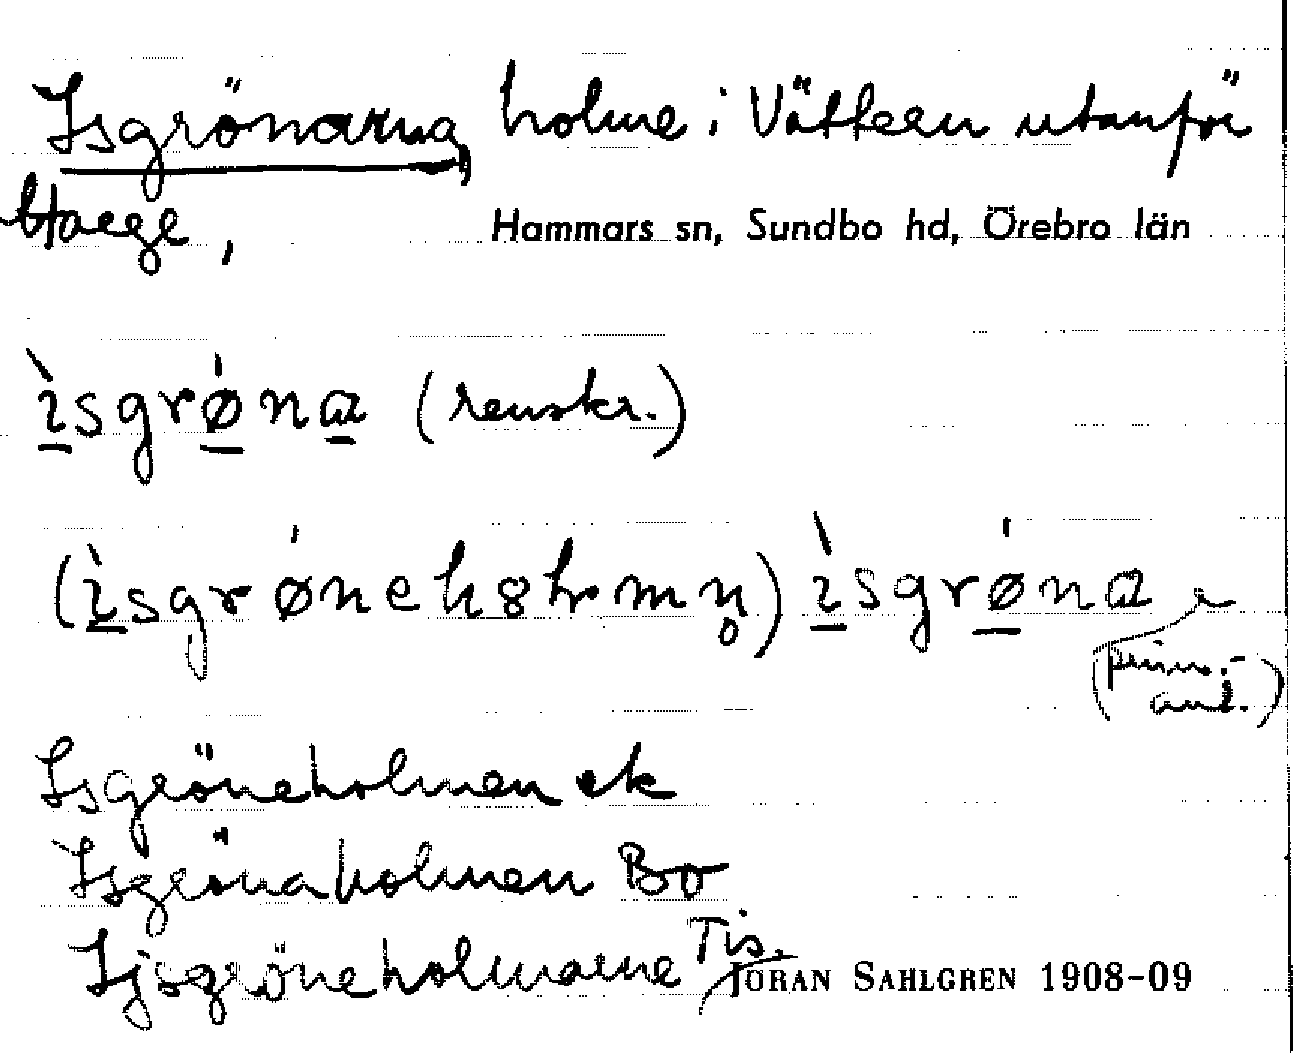 Isgrönarna, holme i Vättern utanför
Harge, Hammars sn, Sundbo hd, Örebro län
ìsgrǿna (renskr.)
(ìsgrǿnehholmn̥) ìsgrǿna
Isgröneholmen ek
Isgrönaholmen Bo
Ijsgröneholmarne Tis.
JÖRAN SAHLGREN 1908-09